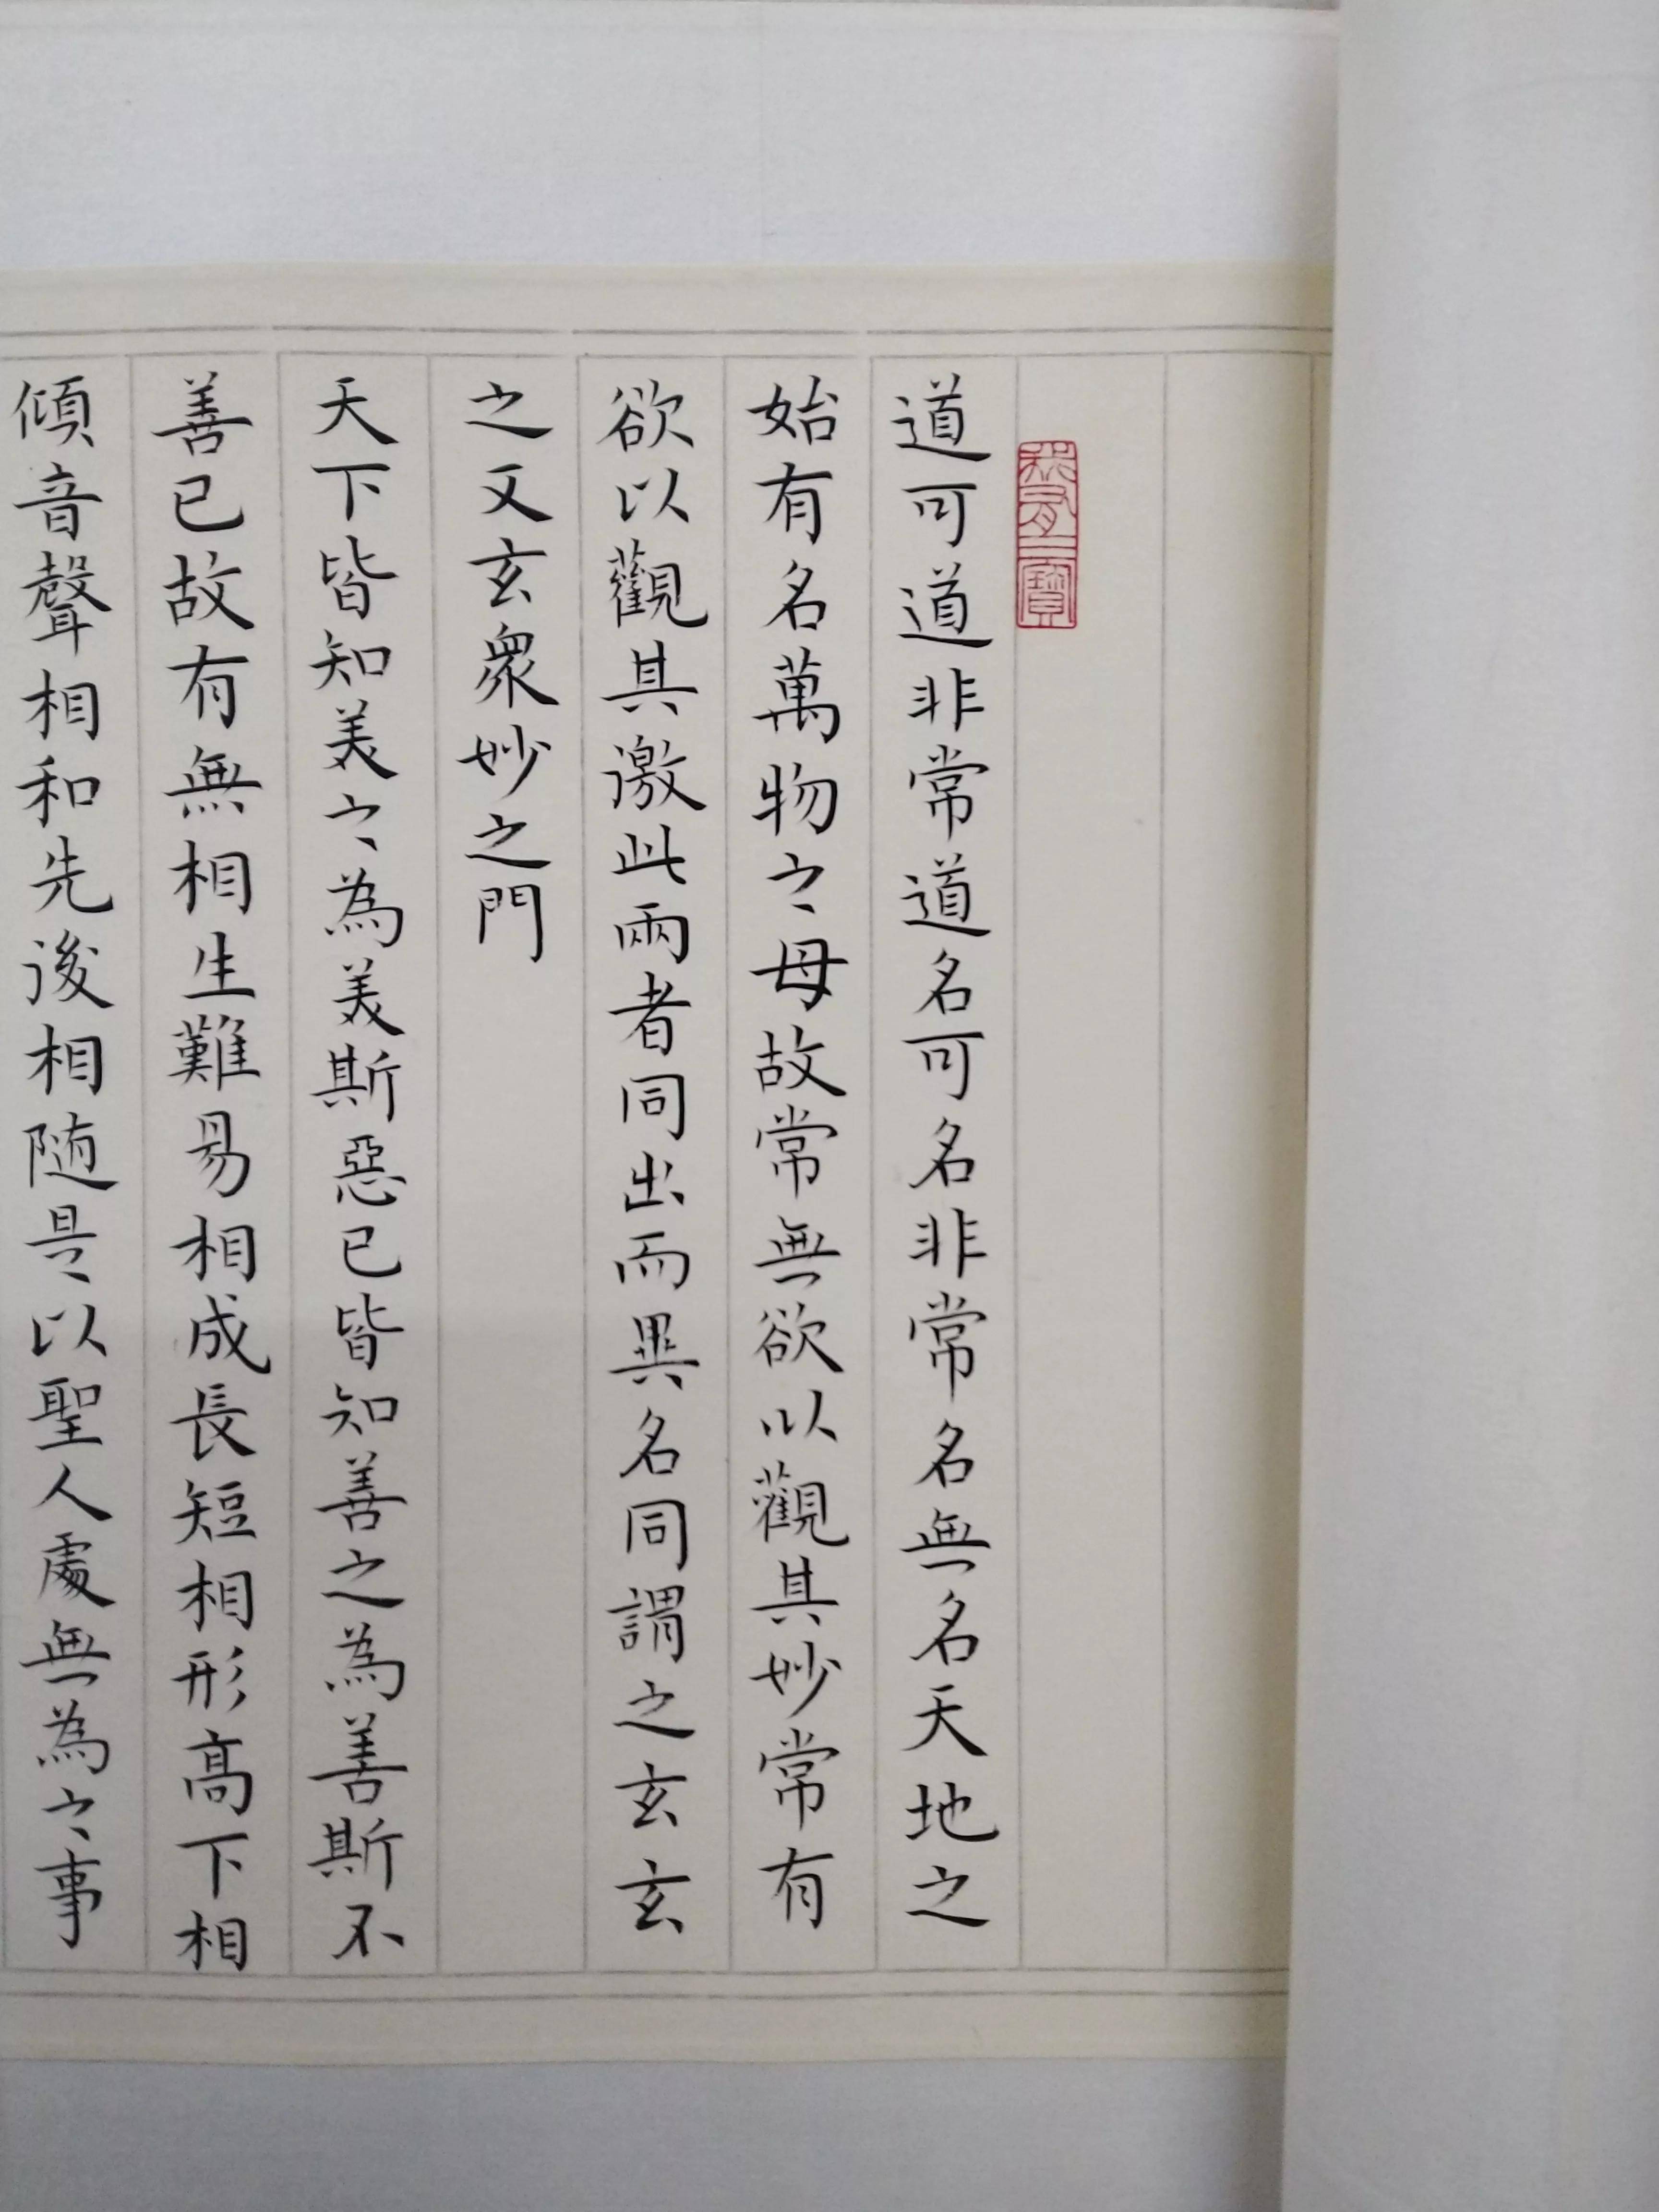 我有三寶
道可道非常道名可名非常名無名天地之
始有名萬物之母故常無欲以觀其妙常有
欲以觀其激此兩者同出而異名同謂之玄玄
之又玄衆妙之門
天下皆知美之為美斯惡已皆知善之為善斯不
善已故有無相生難易相成長短相形高下相
傾音聲相和先後相随是以聖人處無為之事